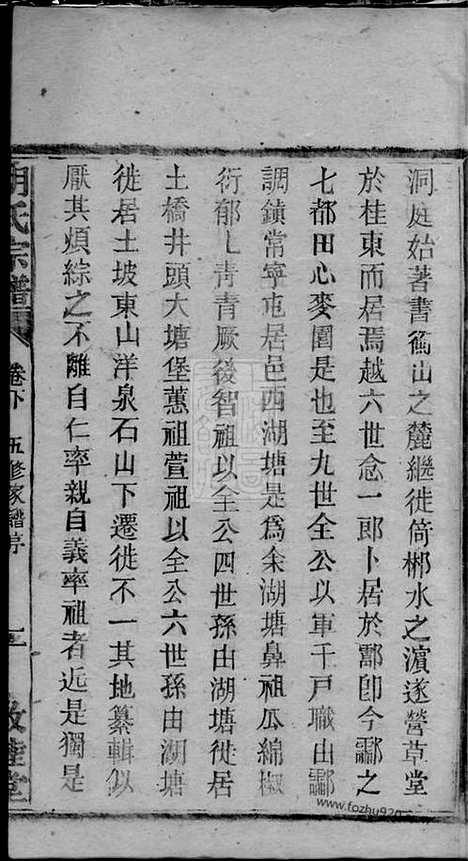 洞庭始著書衡山之麓繼徙倚郴水之濵遂營草堂
於桂東而居焉越六世念一郎卜居於酃卽今酃之
七都田心麥園是也至九世全公以軍千戶職由酃
調鎮常寧屯居邑西湖塘是爲余湖塘鼻祖瓜綿椒
衍郁乚青青厥後智祖以全公四世孫由湖塘徙居
土橋井頭大塘堡蕙祖萱祖以全公六世孫由湖塘
徙居土坡東山洋泉石山下遷徙不一其地纂輯似
厭其煩綜之不離自仁率親自義率祖者近是獨是
胡氏宗譜 卷下 五修家譜序 三 敦睦堂
www.fozhu920.com